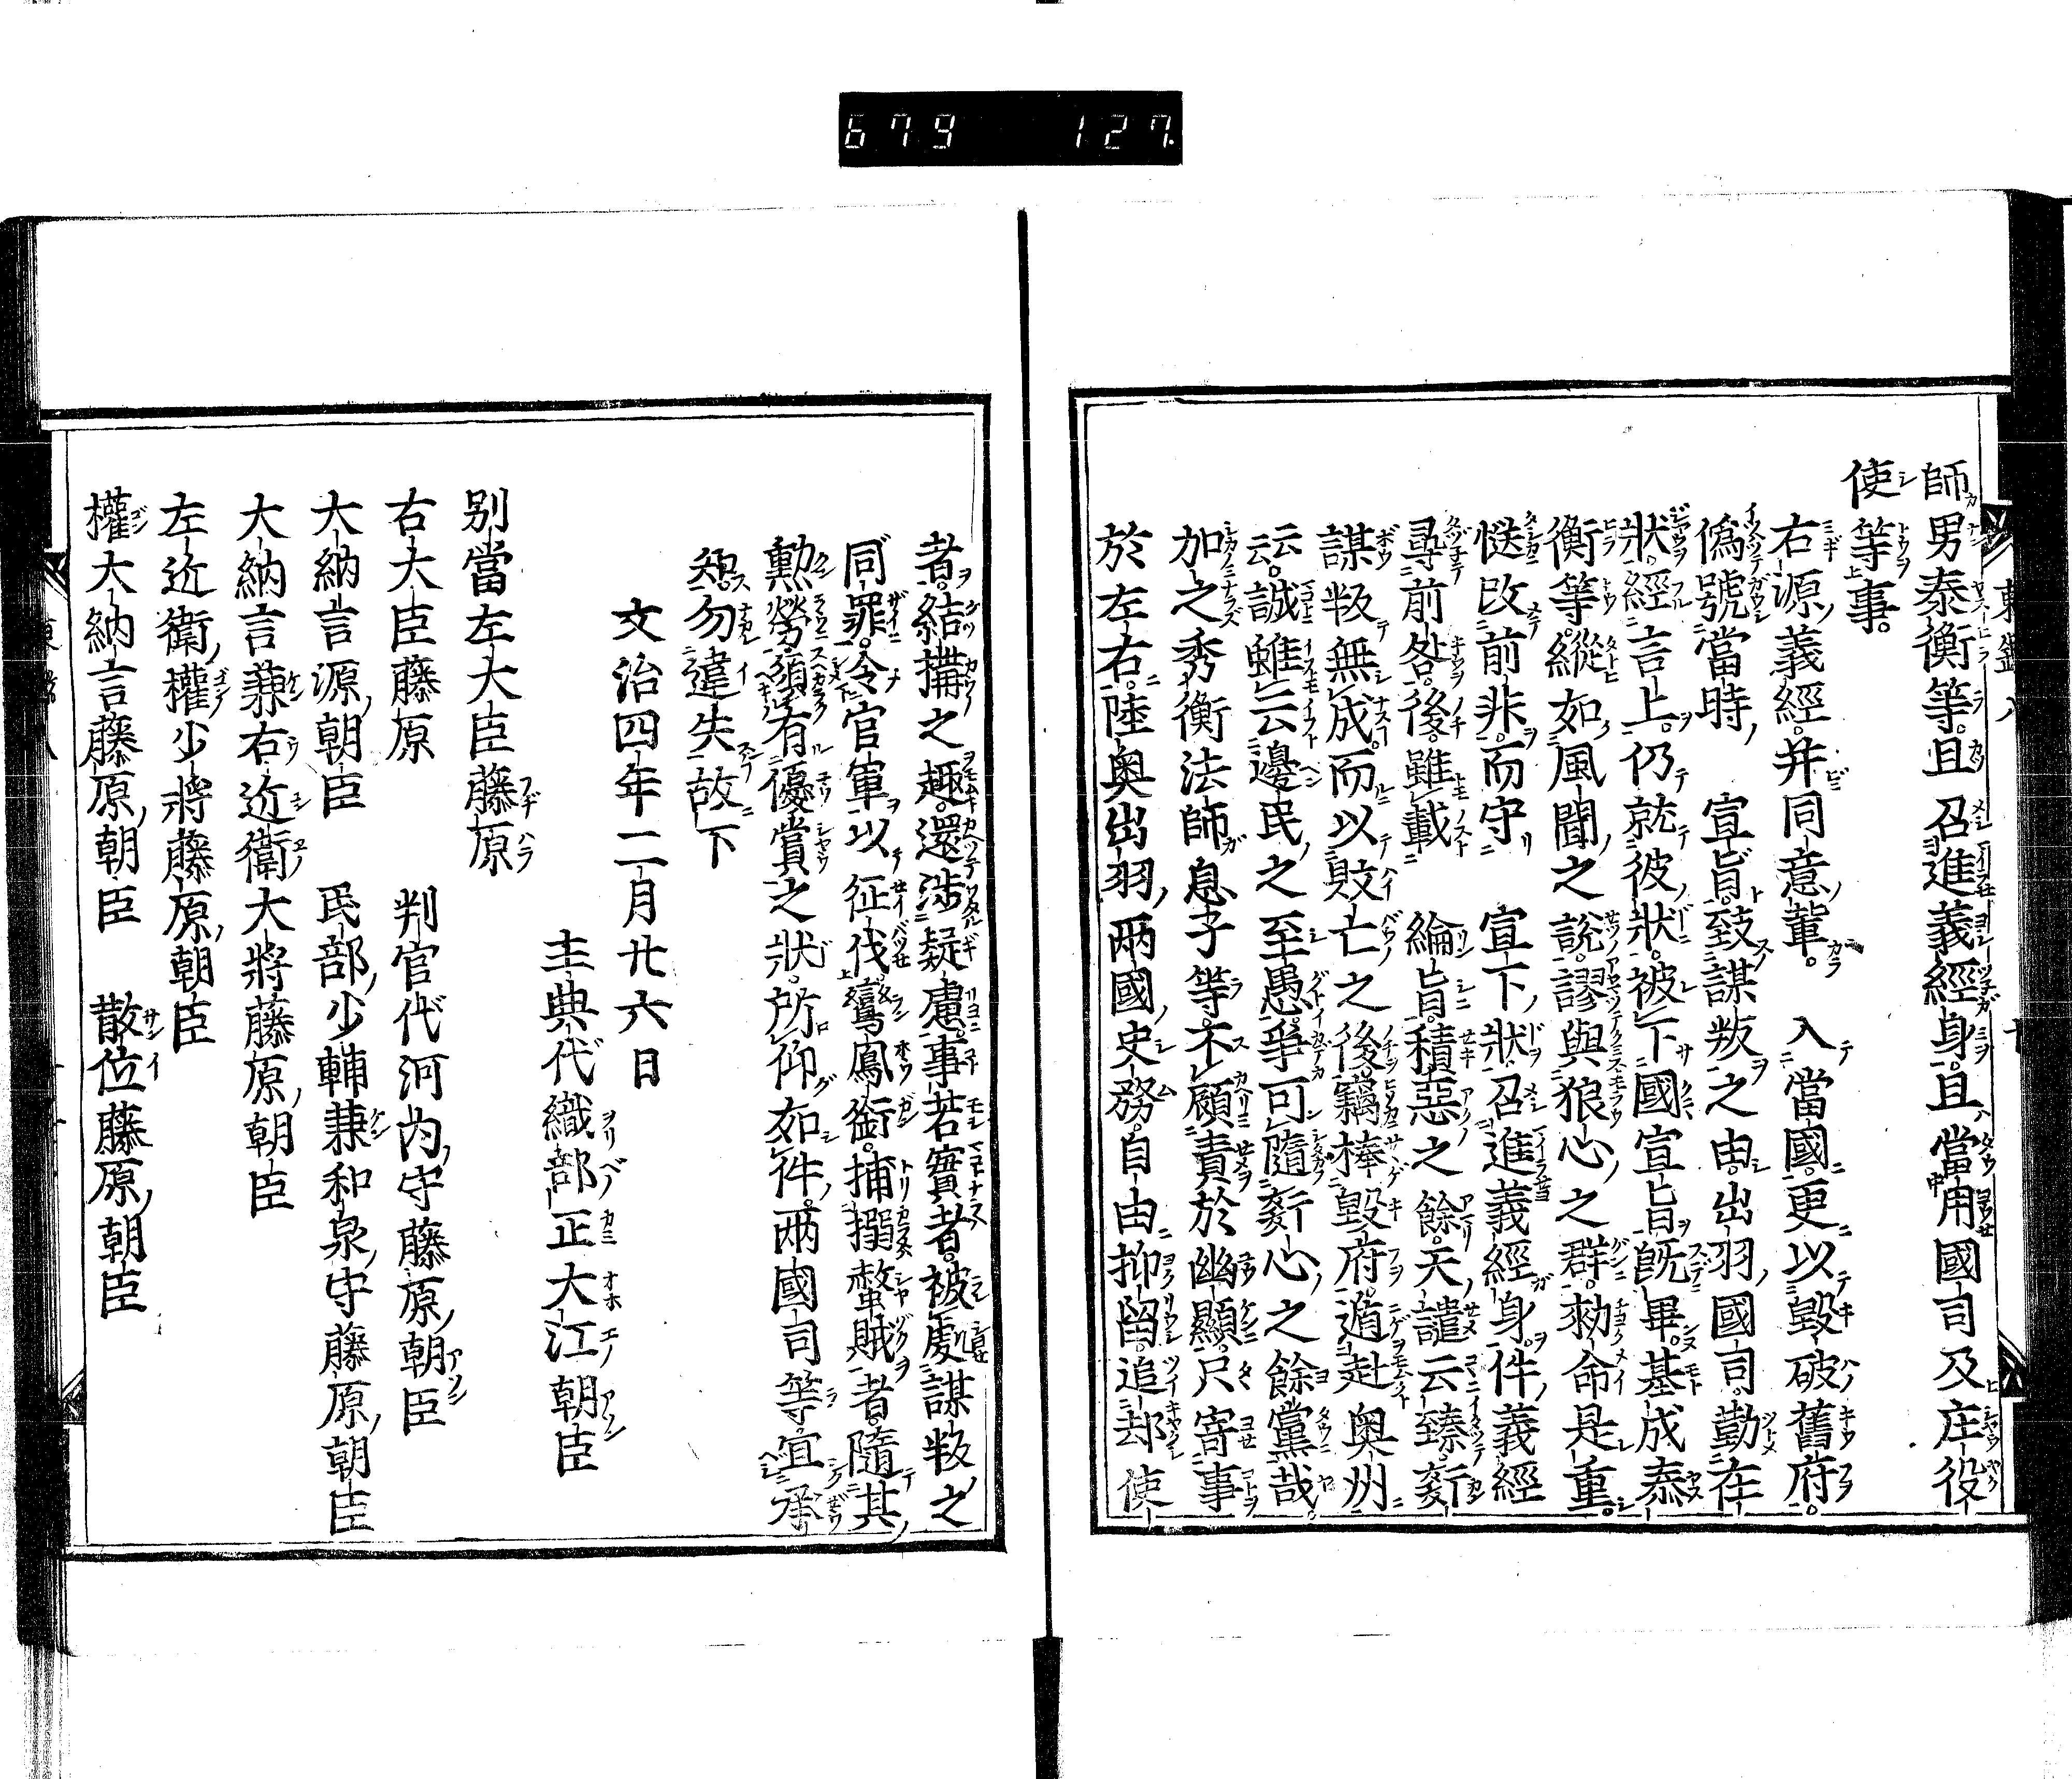 679 127
師男泰衡等。且召進義經身。且當用國司及庄役
使等事。
右源義經。并同意輩。入當國。更以毀破舊府。
僞號當時宣旨。致謀叛之由。出羽國司。勤在
狀。經言上。仍就彼狀。被下國宣旨既畢。基成泰
衡等。縱如風聞之說。謬與狼心之群。勅命是重。
慥改前非。而守宣下狀。召進義經身。件義經
尋前咎後。雖載綸旨。積惡之餘。天譴云臻。
謀叛無成。而以敗亡之後。竊捧毀府。遁赴奥州
云云。誠雖云邊民之至愚。爭可隨姧心之餘黨哉。
加之秀衡法師息子等。不顧責於幽顯。只寄事
於左右。陸奥出羽兩國吏務。自由抑留。追却使
者。結搆之趣。還涉疑慮。事若實者。被處謀叛之
同罪。令官軍以征伐。鸞鳳銜。捕搦螫賊者。隨其
勲勞。須有優賞之狀。所仰如件。兩國司等。宜承
知。勿違失。故下
文治四年二月廿六日
主典代織部正大江朝臣
別當左大臣藤原
右大臣藤原 判官代河內守藤原朝臣
大納言源朝臣 民部少輔兼和泉守藤原朝臣
大納言兼右近衛大將藤原朝臣
左近衛權少將藤原朝臣
權大納言藤原朝臣 散位藤原朝臣